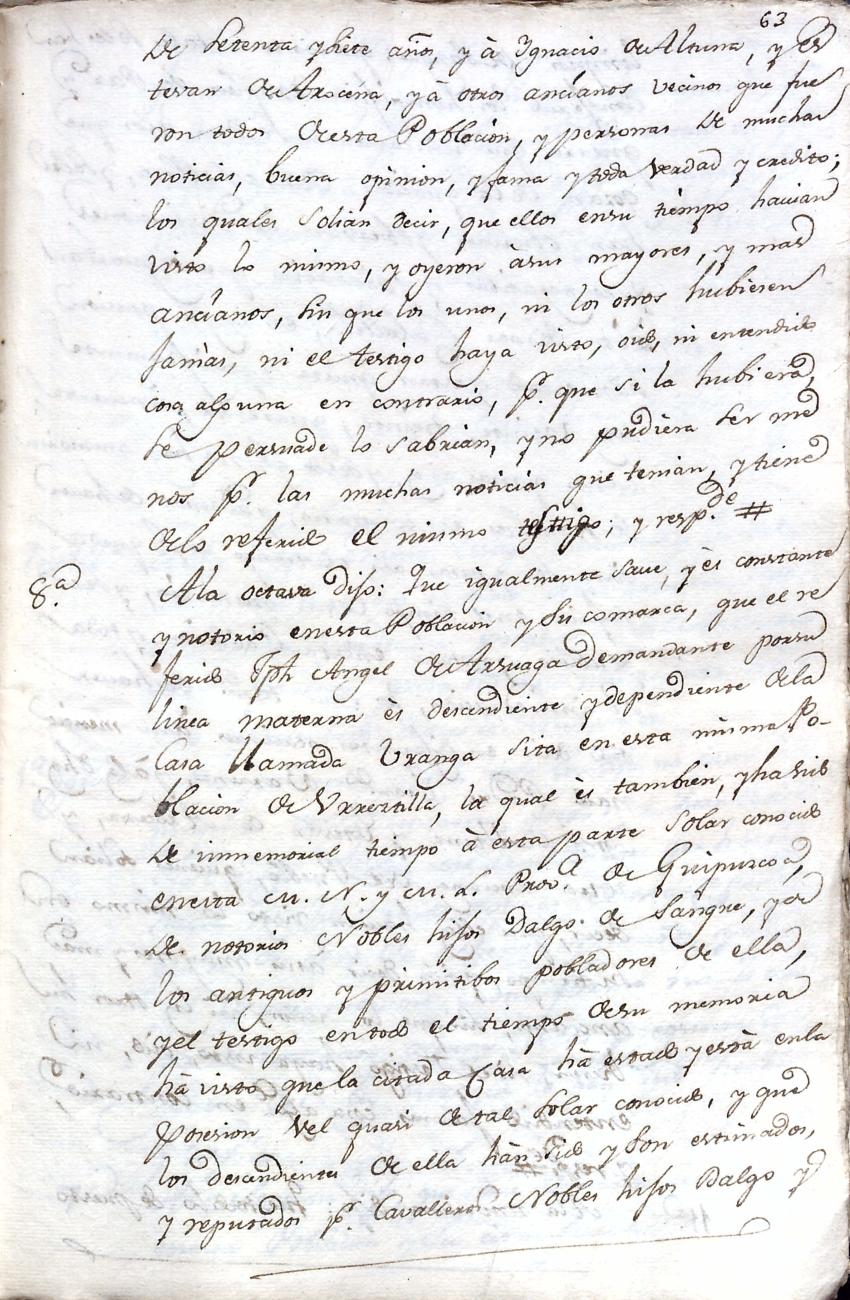 63
de setenta y siete años, y à Ygnacio de Altuna, y Es
tevan de Arocena, y à otros ancianos vecinos que fue
ron todos de esta Poblacion, y personas de muchas
noticias, buena opinion, y fama y toda verdad y credito;
los quales solian decir, que ellos en su tiempo havian
visto lo mismo, y oyeron à sus mayores, y mas
ancianos, sin que los unos, ni los otros hubiesen
jamàs, ni el testigo haya visto, oido, ni entendido
cosa alguna en contrario, pr. que si la hubiera,
se persuade lo sabrian, y no pudiera ser me
nos pr. las muchas noticias que tenian, y tiene
de lo referido el mismo testigo; y resp.de #
8.a A la octava dijo: Que igualmente save, y es constante
y notorio en esta Poblacion y su comarca, que el re
ferido Jph Angel de Arsuaga demandante por su
linea materna ès descendiente y dependiente de la
Casa llamada Vranga sita en esta misma Po-
blacion de Vrrestilla, la qual ès tambien, y ha sido
de inmemorial tiempo à esta parte solar conocido
en esta M. N. y M. L. Prov.a de Guipuscoa,
de notorios Nobles hijos Dalgo de sangre, y de
los antiguos y primitibos pobladores de ella,
y el testigo en todo el tiempo de su memoria
hà visto que la citada Casa hà estado y està en la
posesion vel quasi de tal solar conocido, y que
los descendientes de ella hàn sido y son estimados,
y reputados pr. Cavalleros Nobles hijos Dalgo y